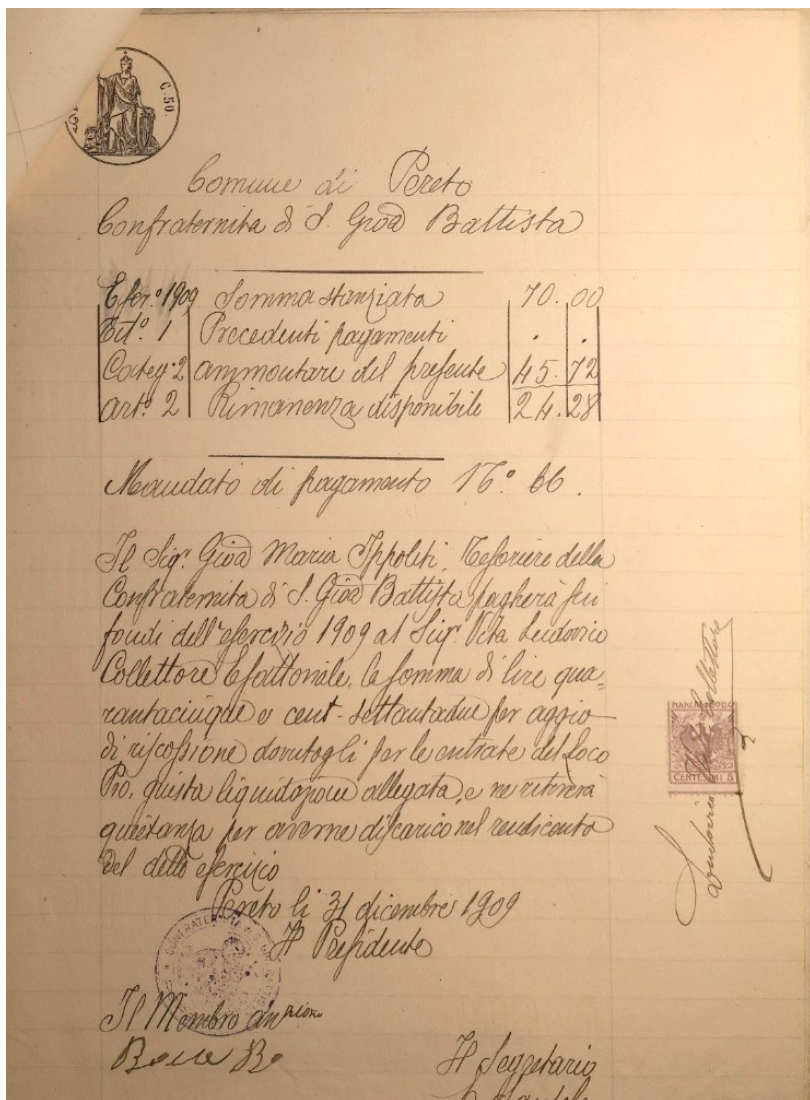 C. 50.
Comune di Pereto
Confraternita di S. Gioa Battista
Eser.° 1909 Somma stanziata 70.00
Tit.° 1 Precedenti pagamenti . .
Categ. 2 ammontare del presente 45.72
art.° 2 Rimanenza disponibile 24.28
Mandato di pagamento N.° 66.
Il Sig.r Gioa Maria Ippoliti, Tesoriere della
Confraternita di S. Gioa Battista pagherà sui
fondi dell'esercizio 1909 al Sig.r Vita Ludovico
Collettore Esattoriale, la somma di lire qua=
rantacinque e cent. settantadue per aggio
di riscossione dovutogli per le entrate del Loco
Pio, giusta liquidazione allegata, e ne ritirerà
quietanza per averne discarico nel rendiconto
del detto esercizio
Pereto li 31 dicembre 1909
Il Presidente
Il Membro anziano
Il Segretario
MARCA DA BOLLO
CENTESIMI 5
Ludovico Vita Collettore
CONFRATERNITA